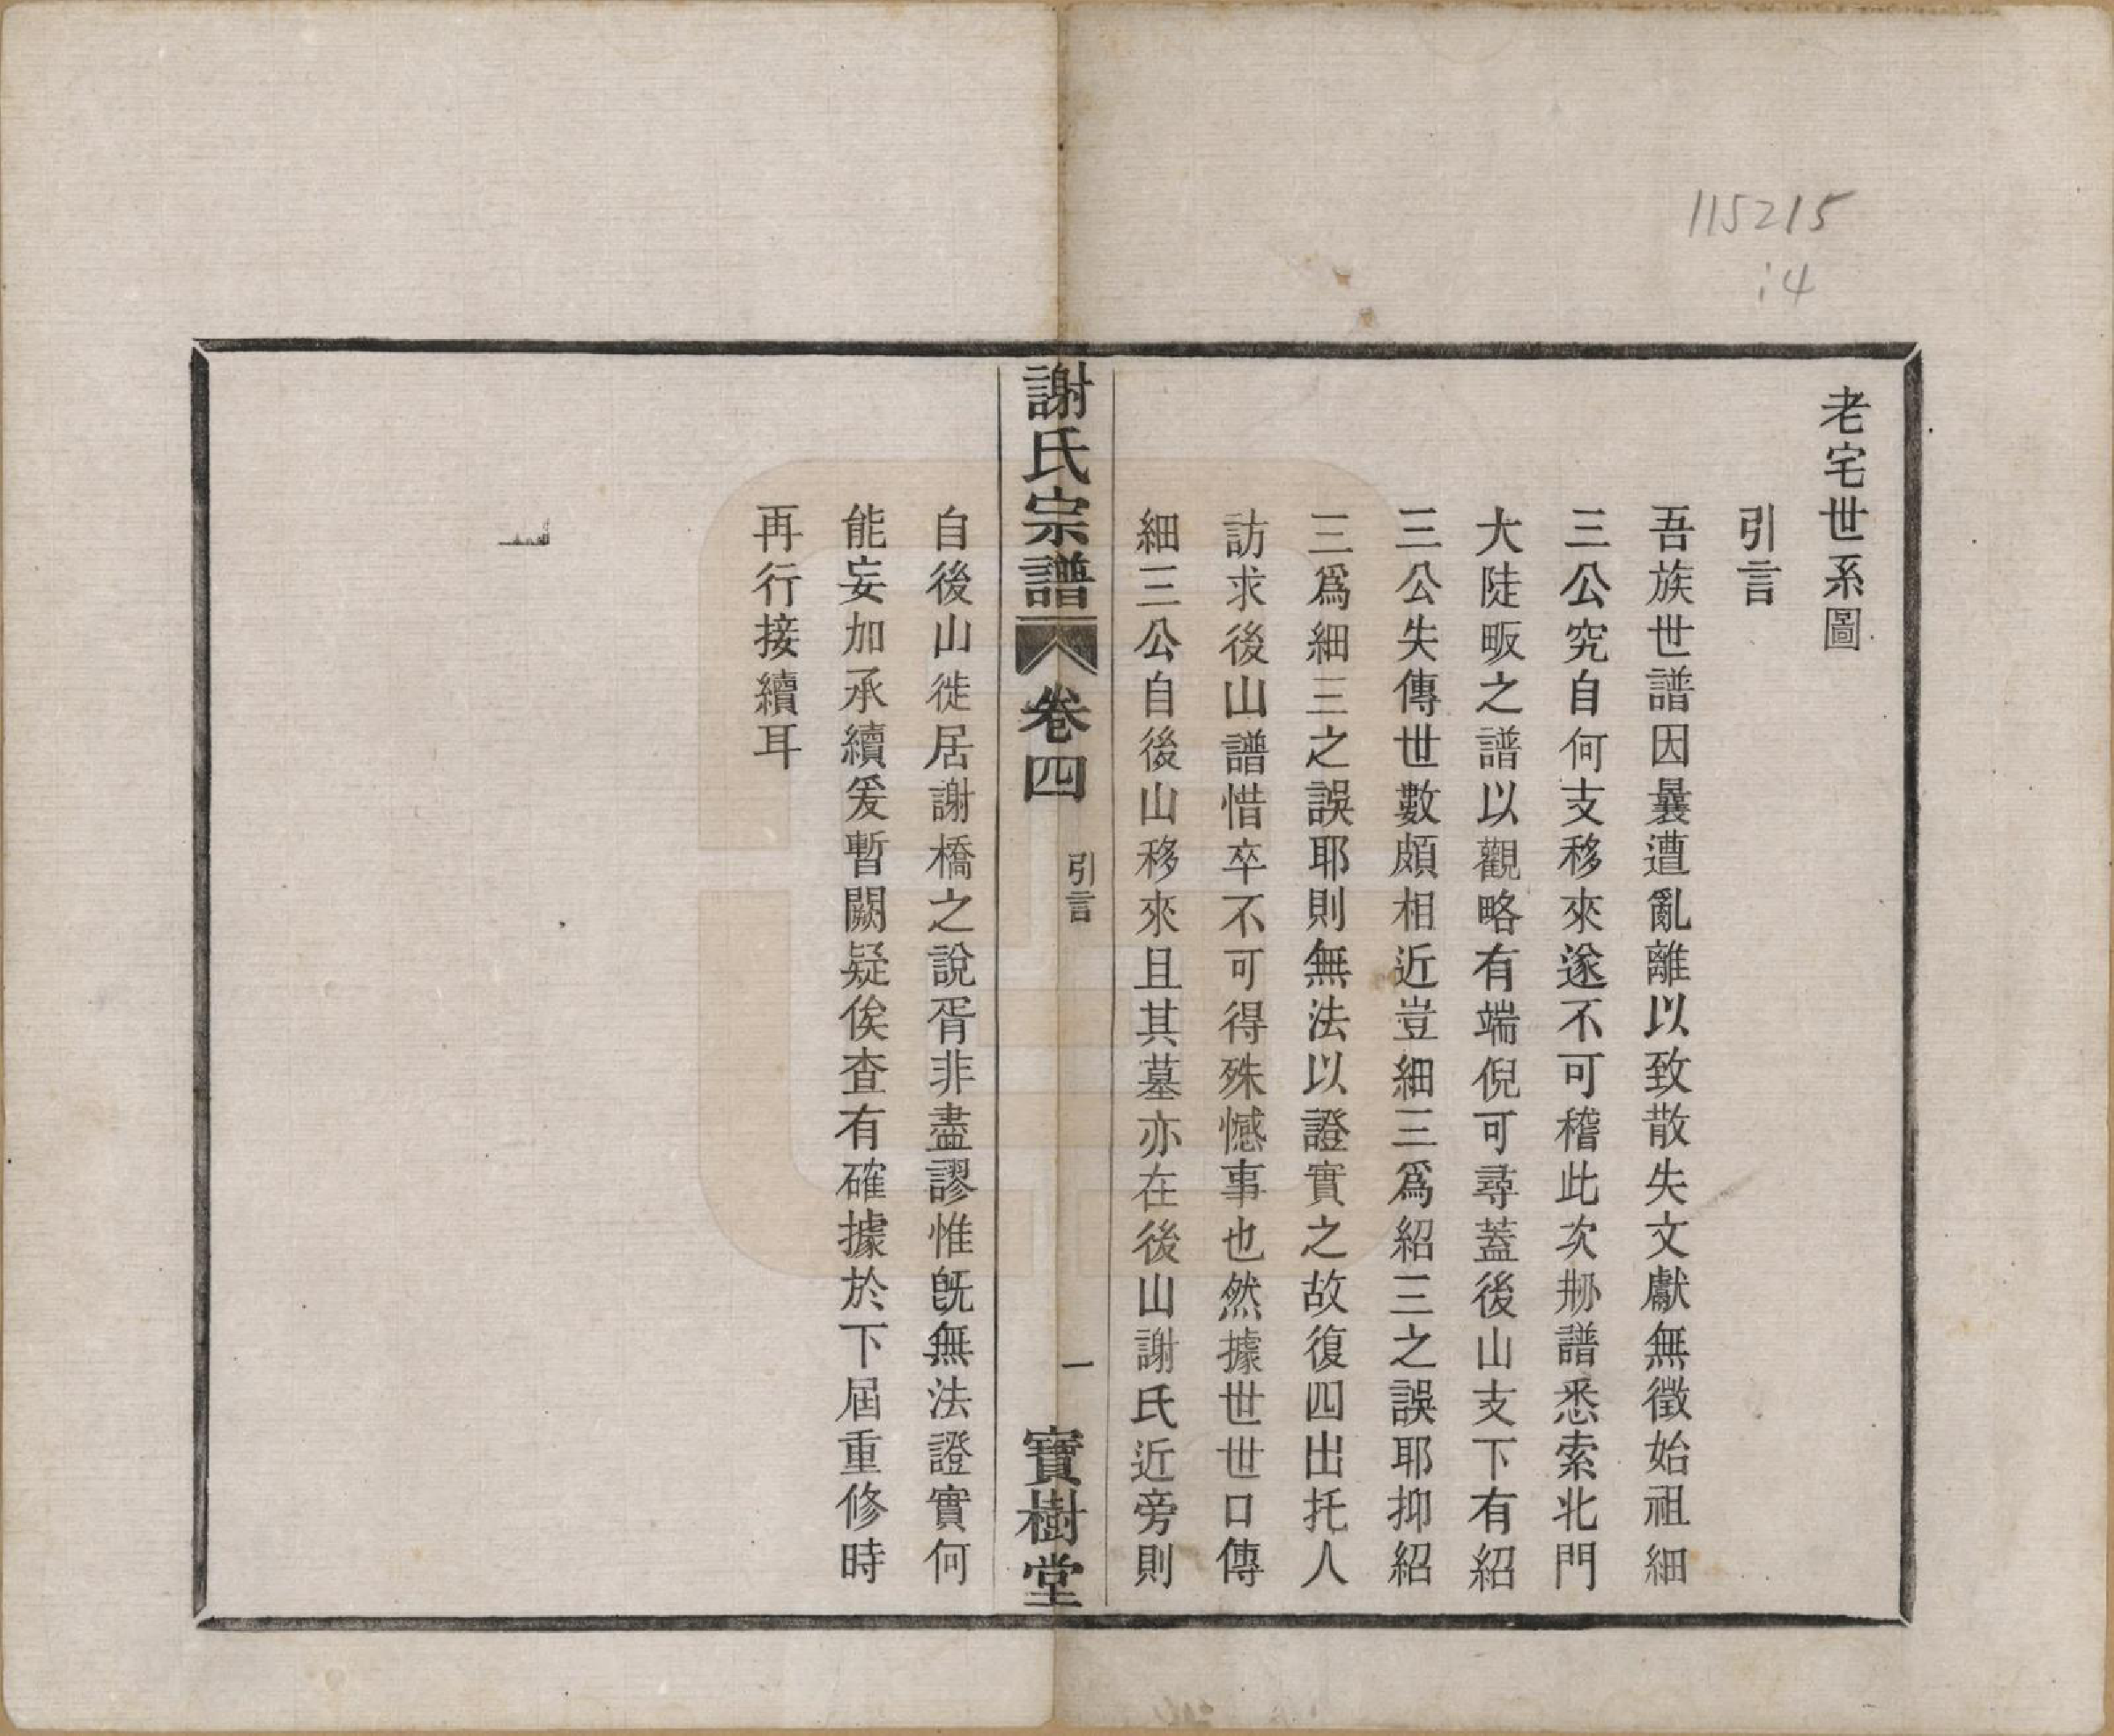 115215
:4
老宅世系圖
引言
吾族世譜因曩遭亂離以致散失文獻無徵始祖細
三公究自何支移來遂不可稽此次刱譜悉索北門
大陡畈之譜以觀略有端倪可尋蓋後山支下有紹
三公失傳世數頗相近豈細三爲紹三之誤耶抑紹
三爲細三之誤耶則無法以證實之故復四出托人
訪求後山譜惜卒不可得殊憾事也然據世世口傳
細三公自後山移來且其墓亦在後山謝氏近旁則
謝氏宗譜 卷四 引言 一 寶樹堂
自後山徙居謝橋之說胥非盡謬惟旣無法證實何
能妄加承續爰暫闕疑俟查有確據於下屆重修時
再行接續耳